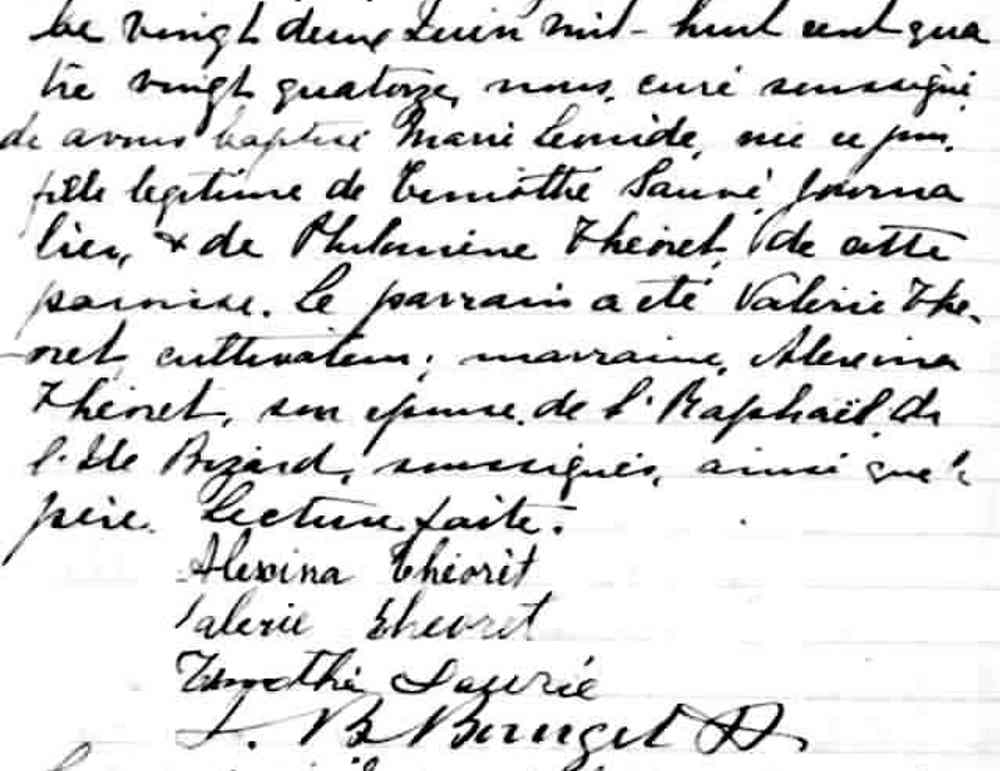 Le vingt deux Juin mil-huit cent qua
tre vingt quatorze, nous, curé soussigné
de avons baptisé Marie Leonide, née ce jour,
fille legitime de Timothé Sauvé, Journa
lier, & de Philomène Théoret, de cette
paroisse. Le parrain a été Valérie Thé-
oret, cultivateur; marraine, Alexina
Théoret, son épouse, de St Raphaël de
l'Ile Bizard, soussignés, ainsi que le
père. Lecture faite.
Alexina Théorèt
Valerie Theoret
Timothé Sauvé
J. B. Bourget